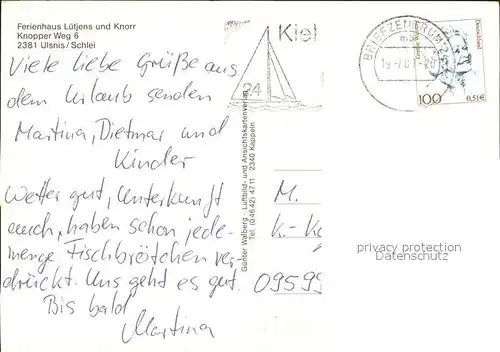 Ferienhaus Lütjens und Knorr
Knopper Weg 6
2381 Ulsnis/Schlei
Viele liebe Grüße aus
dem Urlaub senden
Martina, Dietmar und
Kinder
Wetter gut, Unterkunft
auch, haben schon jede-
menge Fischbrötchen ver-
drückt. Uns geht es gut.
Bis bald
Martina
Günter Walberg · Luftbild- und Ansichtskartenverlag
Tel. (04642) 4711 2340 Kappeln
Kiel
24
BRIEFZENTRUM 24
Deutschland
100
0,51€
M.
K.-K
09599
privacy protection
Datenschutz